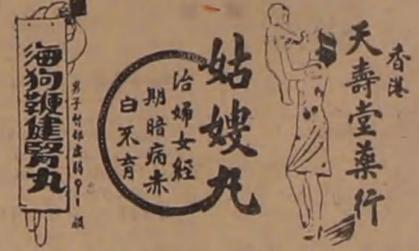 香港
天壽堂藥行
姑嫂丸
治婦女經
期暗病赤
白不育
海狗鞭健腎丸